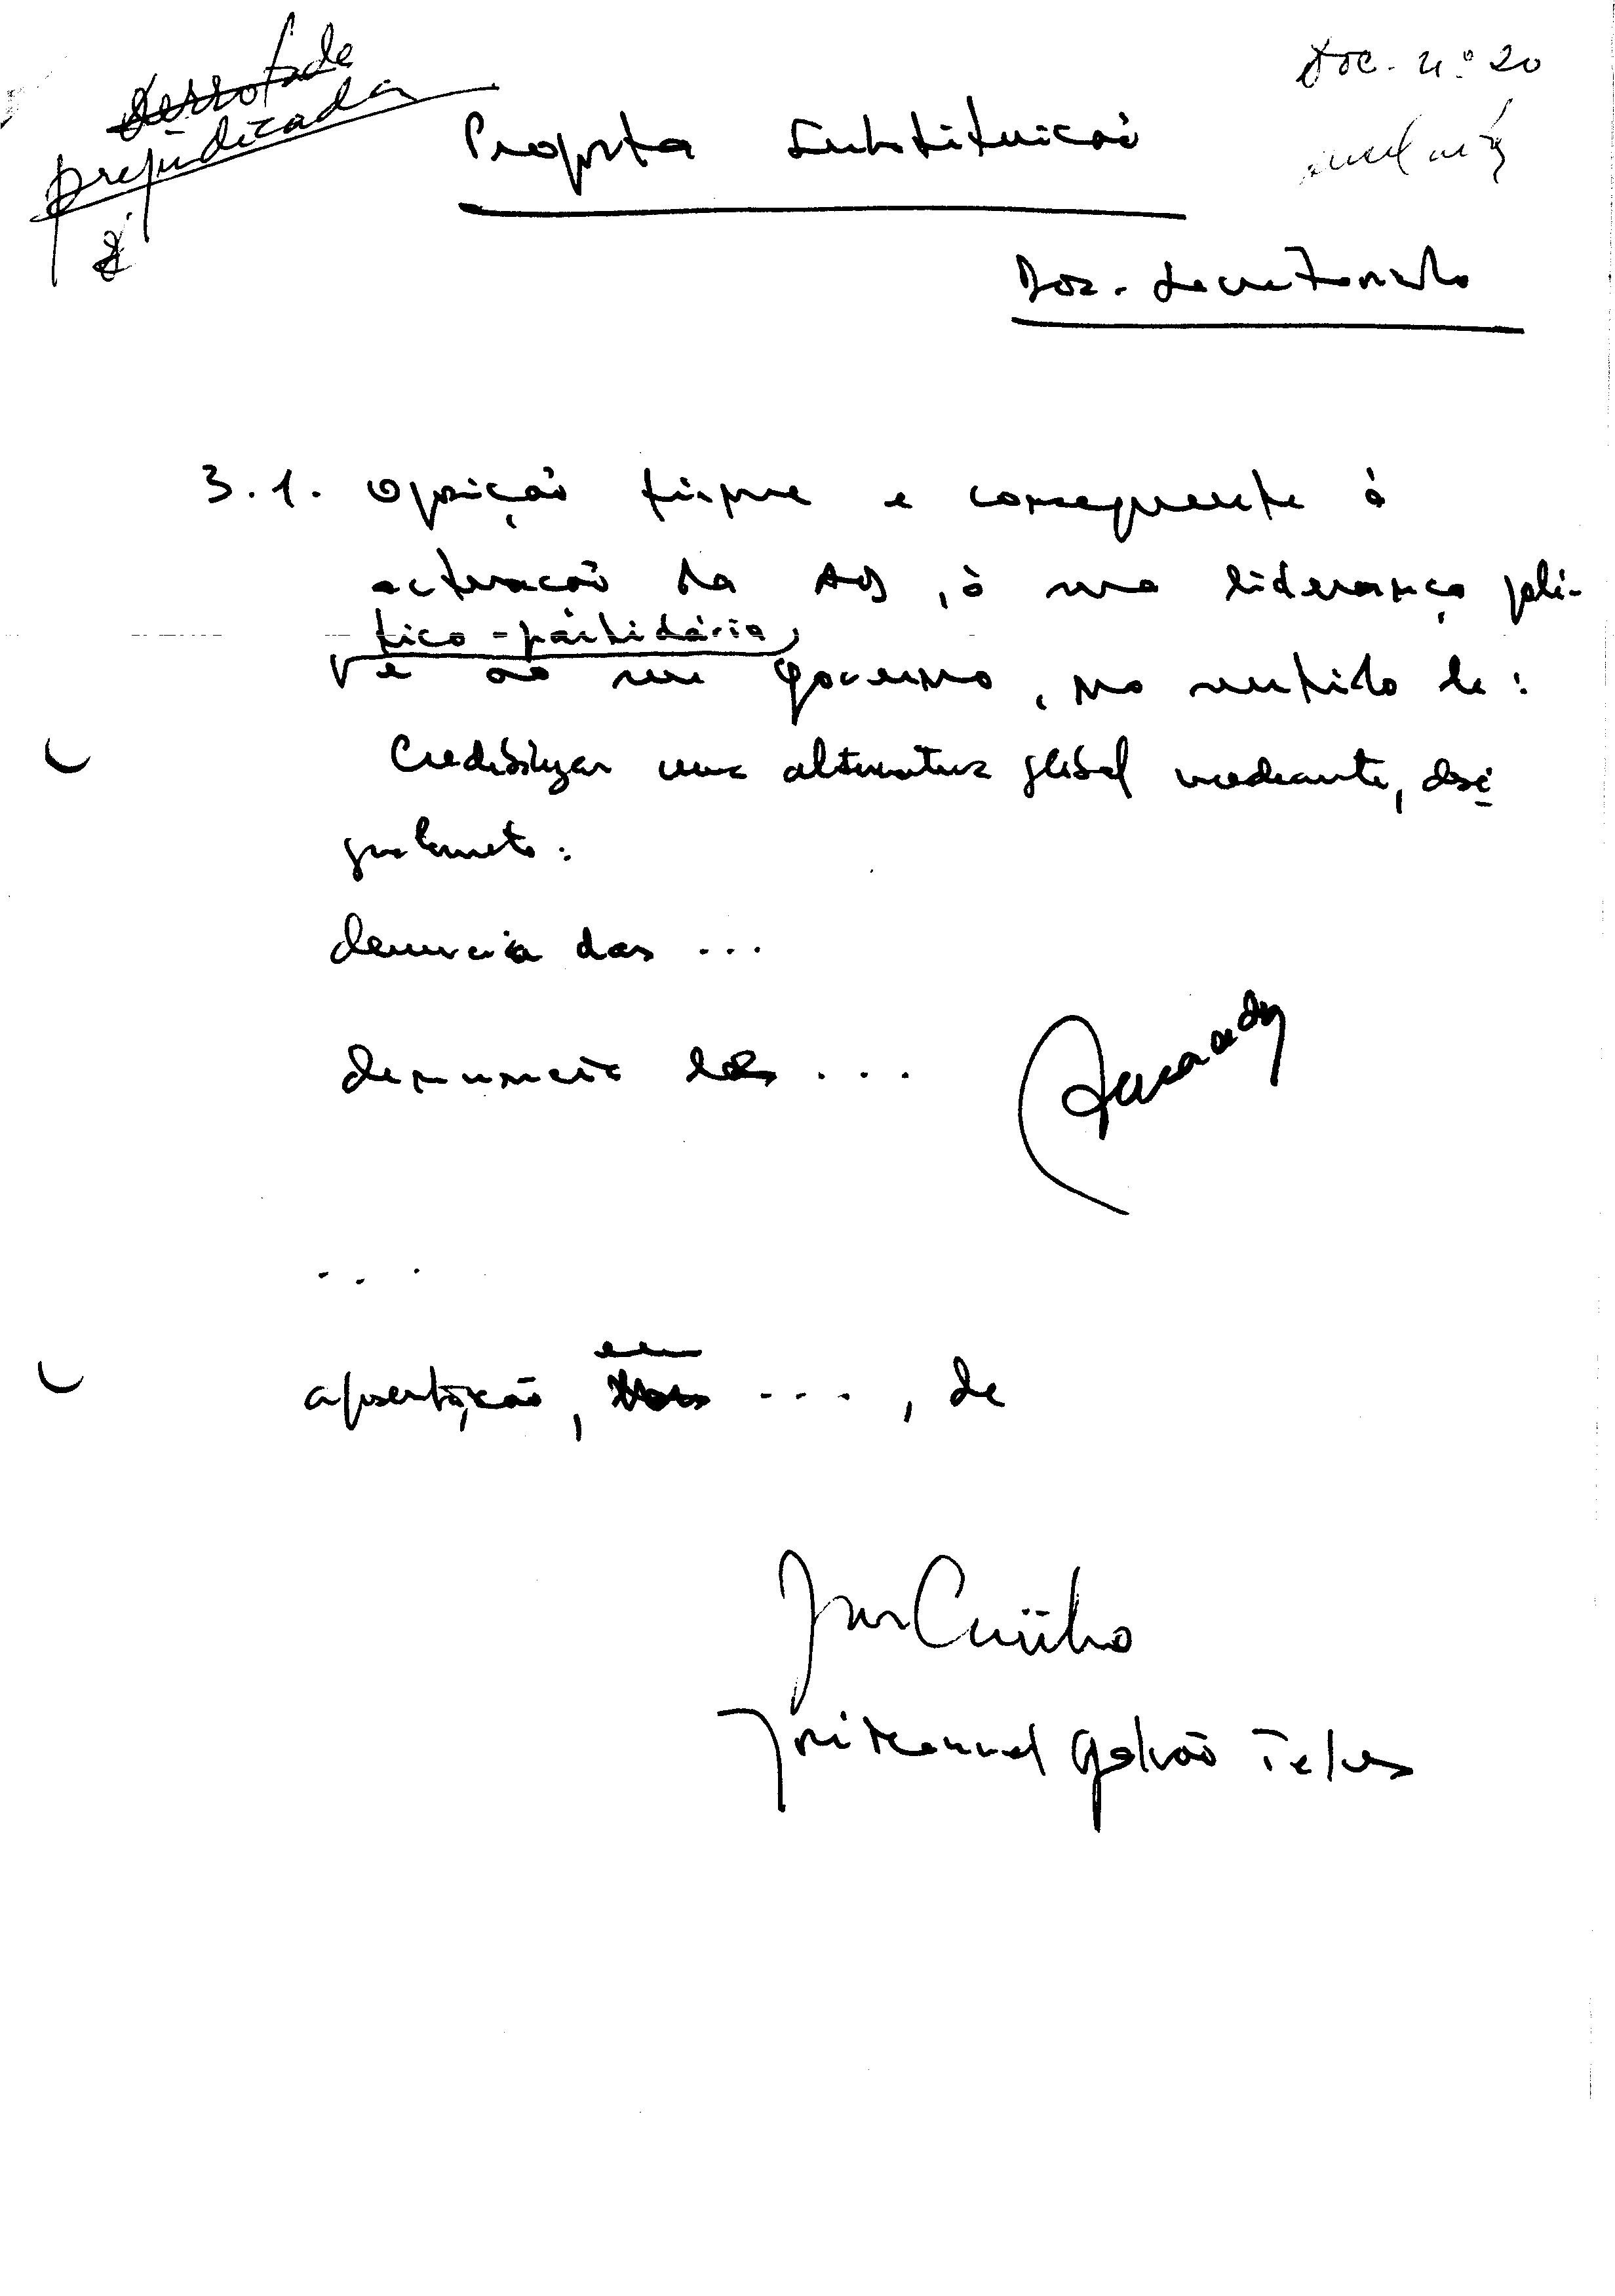 derrotada
prejudicada
Doc. nº 20
Proposta Substituicaõ
Doc. Secretariado
3.1. Oposição firme e consequente à
actuacaõ da AD, à sua liderança polí-
tico-partidária,
e ao seu governo, no sentido de:
Credibilizar uma alternativa global mediante, desi
gnadamente:
denuncia das ...
denuncia das ...
...
apresentação, em ..., de
José Manuel Galvão Teles